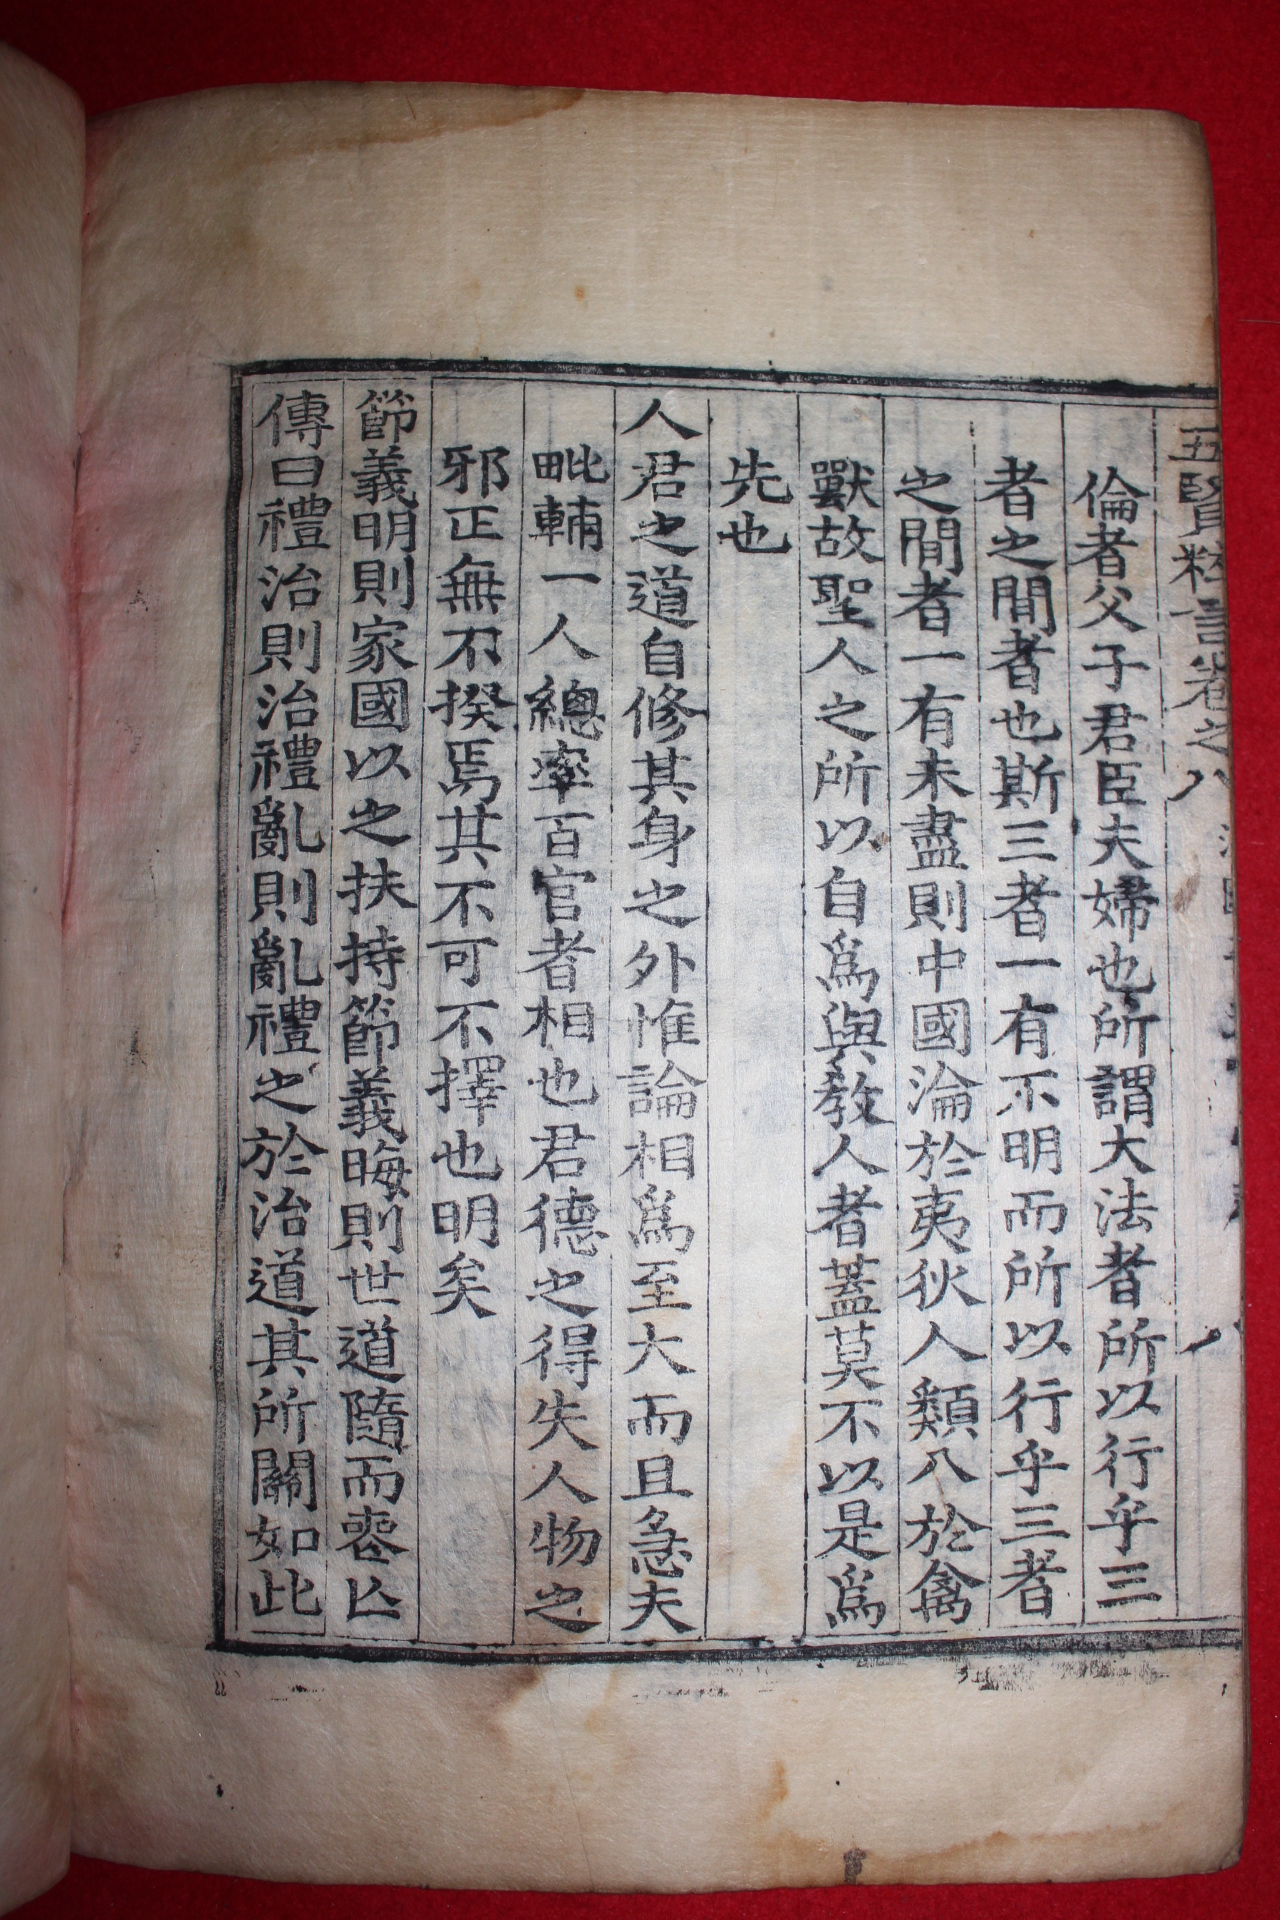 五賢粹言卷之八
倫者父子君臣夫婦也所謂大法者所以行乎三
者之間者也斯三者一有不明而所以行乎三者
之間者一有未盡則中國淪於夷狄人類八於禽
獸故聖人之所以自爲與教人者蓋莫不以是爲
先也
人君之道自修其身之外惟論相爲至大而且急夫
毗輔一人總率百官者相也君德之得失人物之
邪正無不揆焉其不可不擇也明矣
節義明則家國以之扶持節義晦則世道隨而喪亡
傳曰禮治則治禮亂則亂禮之於治道其所關如此